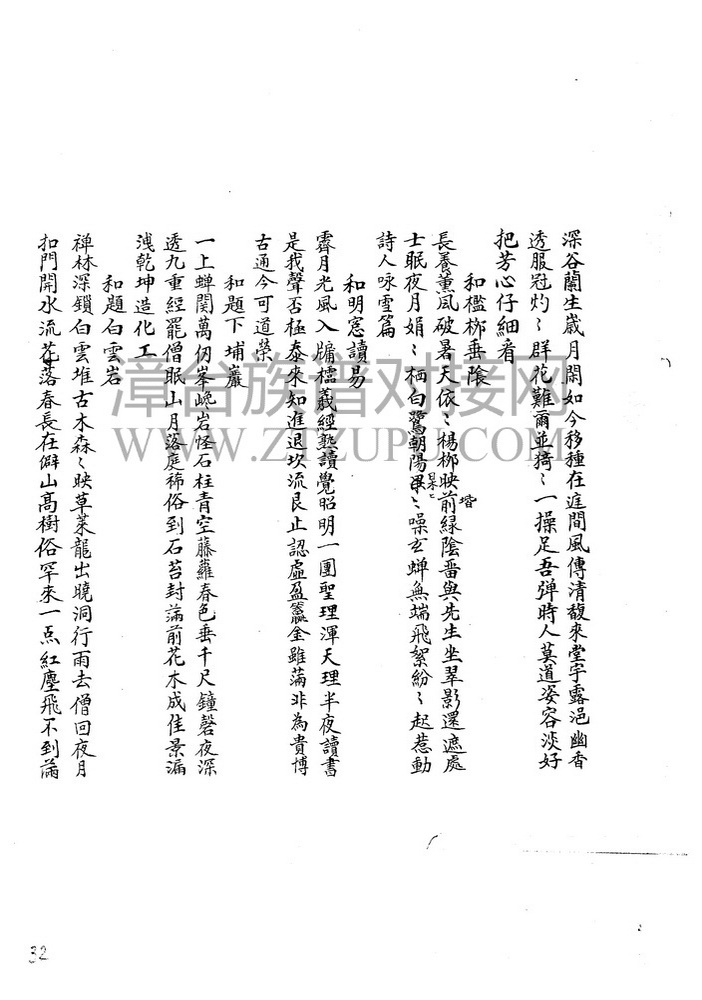 深谷蘭生歲月闌如今移種在庭間風傳清馥來堂宇露浥幽香
透服冠灼〻群花難爾並猗〻一操足吾弹時人莫道姿容淡好
把芳心仔細看
和檻栁垂陰
長養薰風破暑天依〻楊栁映前綠陰畱與先生坐翠影還遮處
堦
士眠夜月娟〻栖白鷺朝陽杲〻噪玄蝉無端飛絮紛〻起惹動
杲〻
詩人咏雪篇
和明窓讀易
霽月光風入牖櫺羲經熟讀覺昭明一團聖理渾天理半夜讀書
是我聲否極泰來知進退坎流艮止認虛盈籯金雖滿非為貴博
古通今可道榮
和題下埔巖
一上蝉関萬仞峯巉岩怪石柱青空藤蘿春色垂千尺鐘磬夜深
透九重經罷僧眠山月落庭稀俗到石苔封滿前花木成佳景漏
洩乾坤造化工
和題白雲岩
禅林深鎖白雲堆古木森〻映草萊龍出曉洞行雨去僧回夜月
扣門開水流花落春長在僻山高樹俗罕來一点紅塵飛不到滿
32
漳台族譜对接网
WWW.ZTZUPU.COM